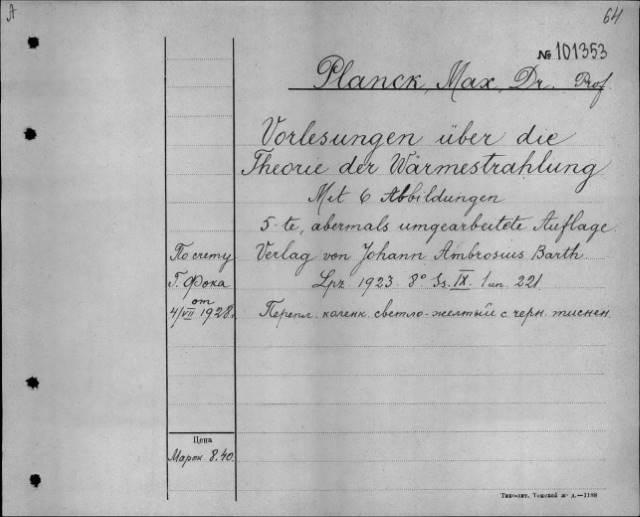 A
64
№ 101353
Planck, Max, Dr. Prof
Vorlesungen über die
Theorie der Wärmestrahlung
Mit 6 Abbildungen
5-te, abermals umgearbeitete Auflage.
Verlag von Johann Ambrosius Barth
Lpz. 1923. 8° Ss. IX. 1 un. 221
Перепл. каленк. светло-желтый с черн. тиснен.
По счету
Г. Фока
от
4/VII 1928г.
Цена
Марок 8.40.
Типо-лит. Томской ж. д.—1198